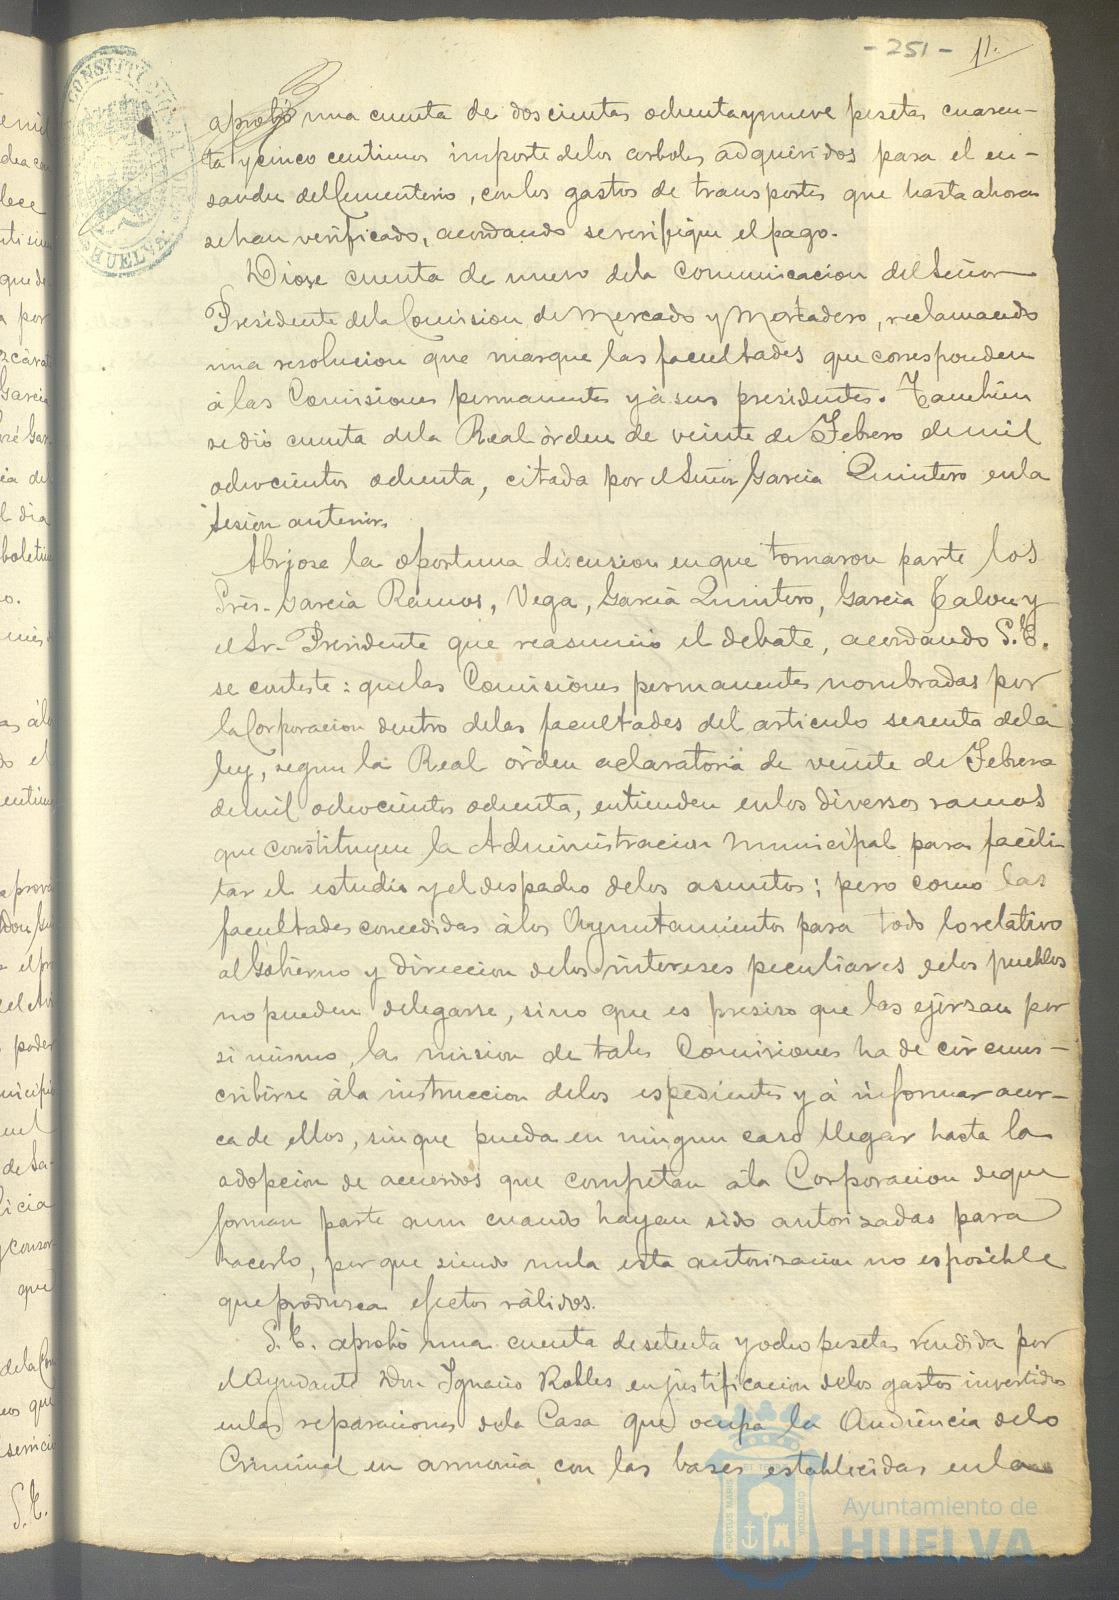 - 251 - 11.
aprobó una cuenta de doscientas ochenta y nueve pesetas cuaren-
ta y cinco centimos importe de los arboles adquiridos para el en-
sanche del Cementerio, con los gastos de transportes que hasta ahora
se han verificado, acordando se verifique el pago.
Diose cuenta de nuevo de la comunicacion del Señor
Presidente de la Comision de Mercado y Matadero, reclamando
una resolucion que marque las facultades que corresponden
á las Comisiones permanentes y á sus presidentes. Tambien
se dió cuenta de la Real órden de veinte de Febrero de mil
ochocientos ochenta, citada por el Señor Garcia Quintero en la
sesion anterior.
Abriose la oportuna discusion en que tomaron parte los
Sres. Garcia Ramos, Vega, Garcia Quintero, Garcia y
el Sr. Presidente que reasumió el debate, acordando S.E.
se conteste: que las Comisiones permanentes nombradas por
la Corporacion dentro de las facultades del articulo sesenta de la
ley, segun la Real órden aclaratoria de veinte de Febrero
de mil ochocientos ochenta, entienden en los diversos ramos
que constituyen la Administracion Municipal para facili-
tar el estudio y el despacho de los asuntos; pero como las
facultades concedidas á los Ayuntamientos para todo lo relativo
al Gobierno y direccion de los intereses peculiares de los pueblos
no pueden delegarse, sino que es presiso que las ejersan por
si mismo, la mision de tales Comisiones ha de circuns-
cribirse á la instruccion de los espedientes y á informar acer-
ca de ellos, sin que pueda en ningun caso llegar hasta la
adopcion de acuerdos que competan á la Corporacion de que
forman parte aun cuando hayan sido autorisadas para
hacerlo, por que siendo nula esta autorisacion no es posible
que produsca efectos válidos.
S.E. aprobó una cuenta de setenta y ocho pesetas rendida por
el Ayudante Don Ignacio Robles en justificacion de los gastos invertidos
en las reparaciones de la Casa que ocupa la Audiencia de lo
Criminal en armonia con las bases establecidas en la
Ayuntamiento de
HUELVA